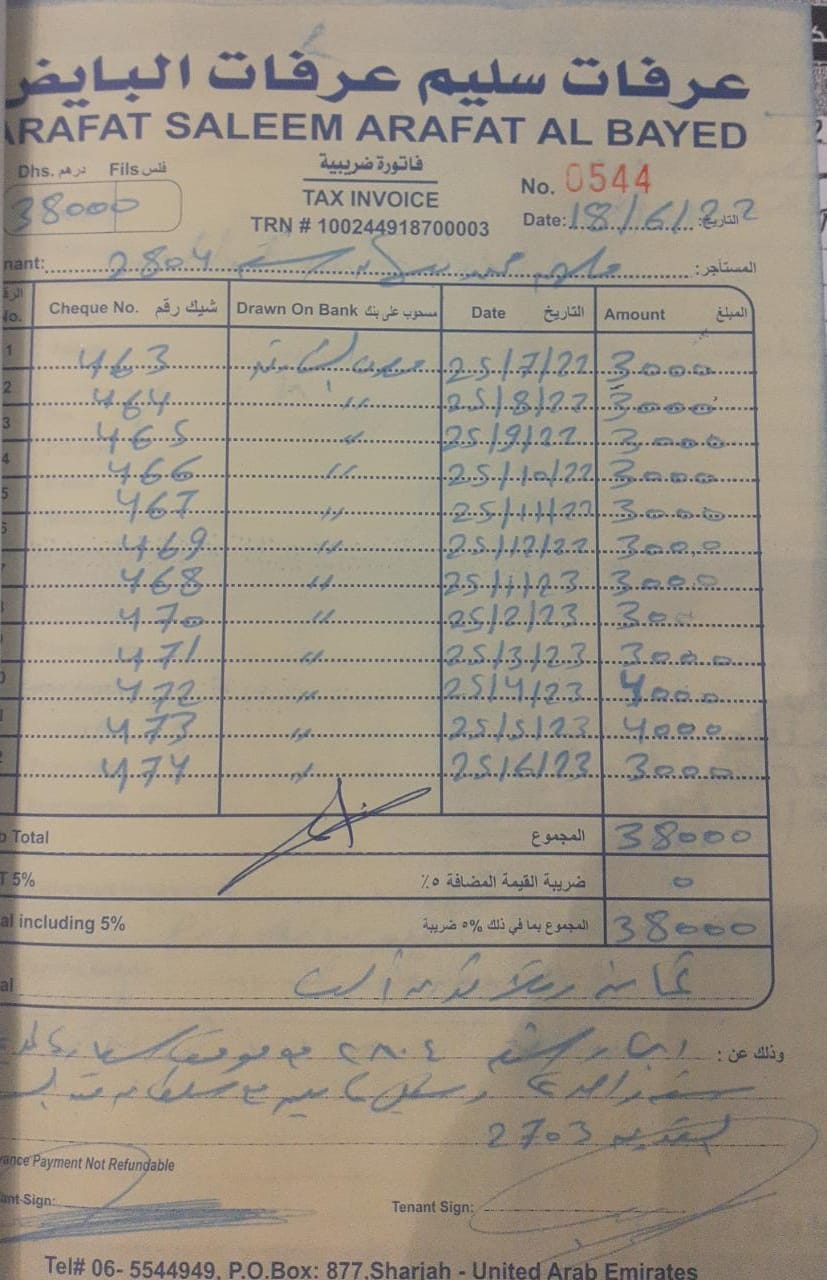 عرفات سليم عرفات البايض
ARAFAT SALEEM ARAFAT AL BAYED
Dhs. درهم Fils فلس
38000
فاتورة ضريبية
TAX INVOICE
TRN # 100244918700003
No. 0544
Date: 18/6/22 التاريخ:
nant: 2804 شقة المستأجر:
No. Cheque No. شيك رقم Drawn On Bank مسحوب على بنك Date التاريخ Amount المبلغ
1 463 25/7/22 3000
2 464 " 25/8/22 3000
3 465 " 25/9/22 3000
4 466 " 25/10/22 3000
5 467 " 25/11/22 3000
6 469 " 25/12/22 3000
468 " 25/1/23 3000
470 " 25/2/23 300
471 " 25/3/23 3000
472 " 25/4/23 4000
473 " 25/5/23 4000
474 " 25/6/23 3000
b Total المجموع 38000
T 5% ضريبة القيمة المضافة ٥٪ 0
al including 5% المجموع بما في ذلك ٥% ضريبة 38000
al ثمانية وثلاثون ألف
وذلك عن: ايجار شقة ٢٨٠٤
2703
vance Payment Not Refundable
ant Sign: Tenant Sign:
Tel# 06- 5544949, P.O.Box: 877,Sharjah - United Arab Emirates